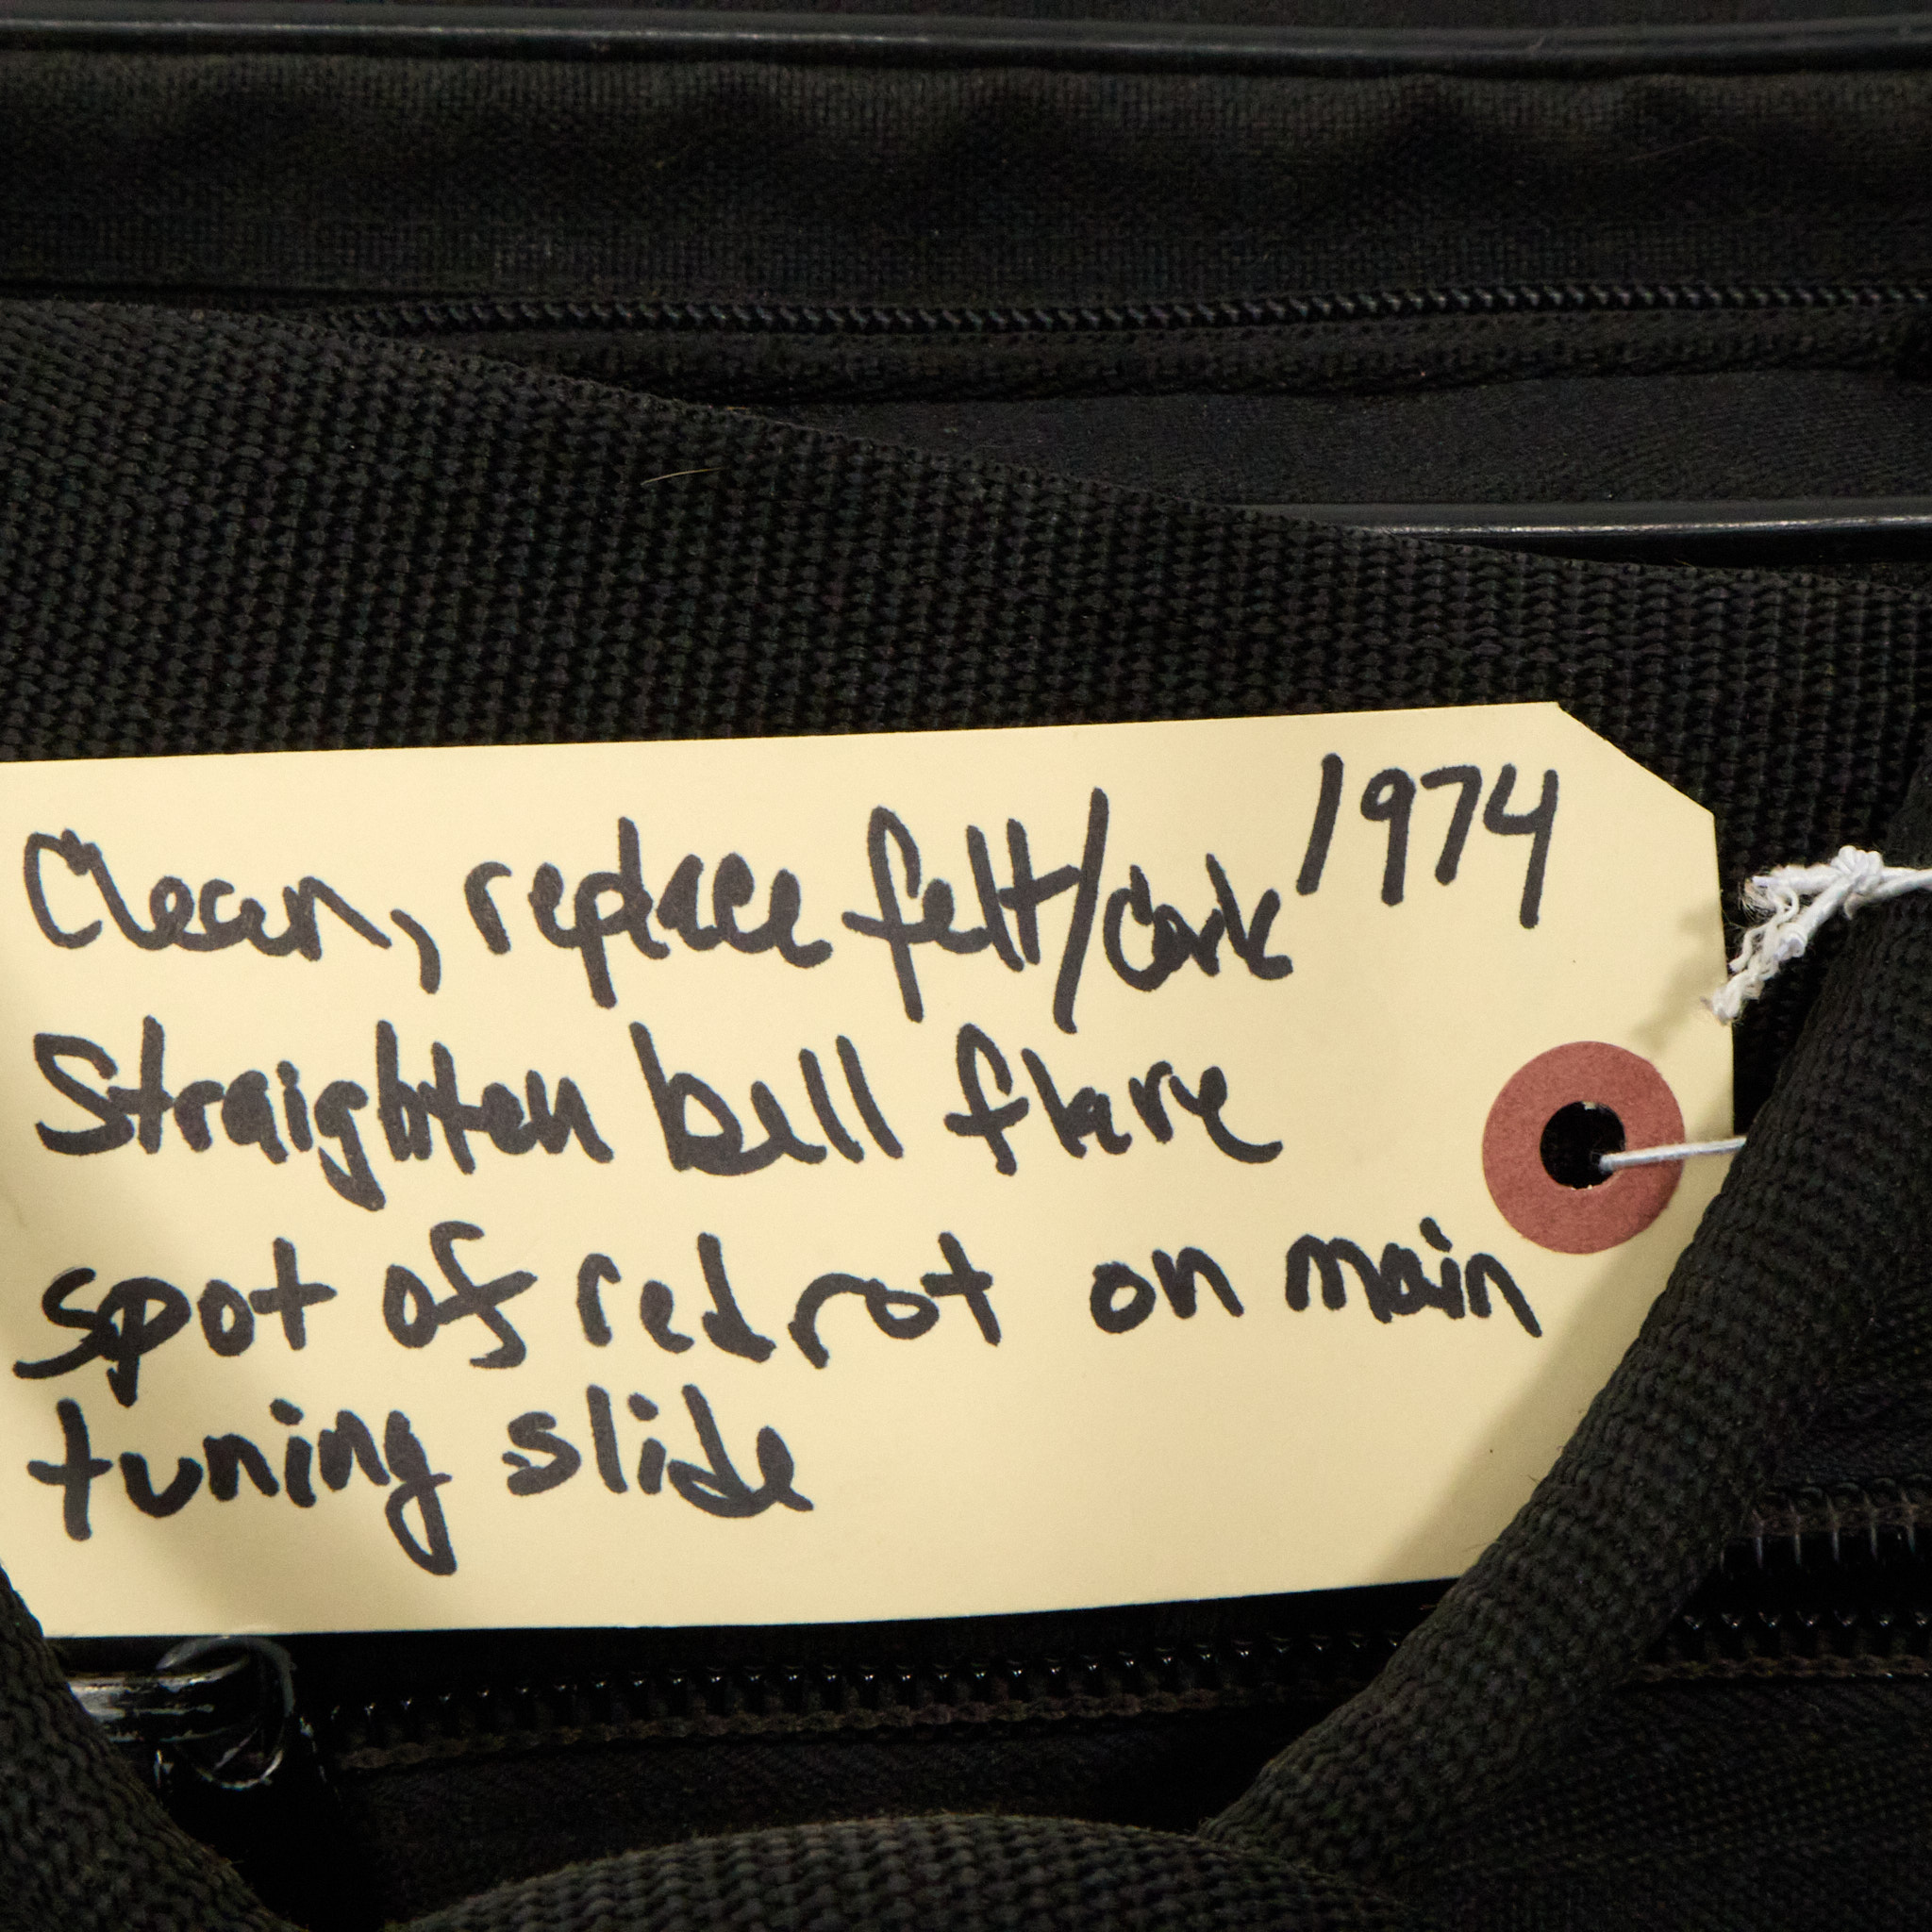 Clean, replace felt/cork 1974
Straighten bell flare
spot of red rot on main
tuning slide